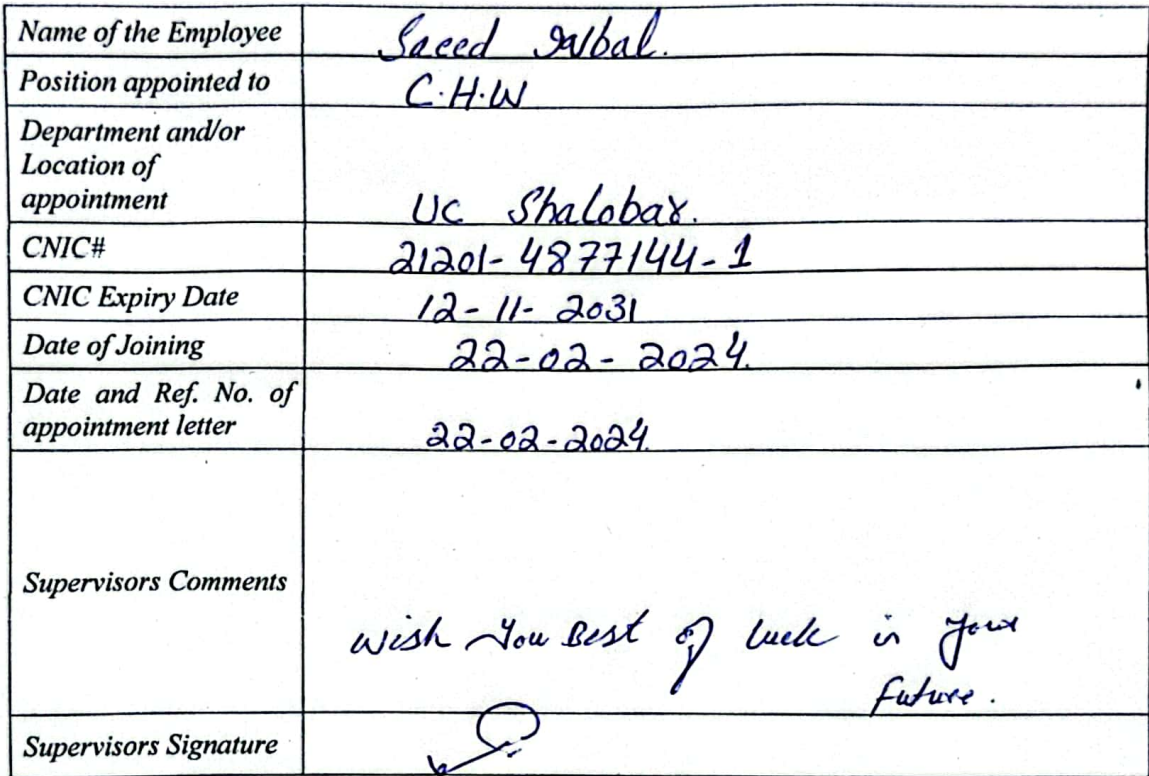 Name of the Employee Saeed Iqbal.
Position appointed to C.H.W
Department and/or
Location of
appointment UC Shalobar.
CNIC# 21201-4877144-1
CNIC Expiry Date 12-11-2031
Date of Joining 22-02-2024.
Date and Ref. No. of
appointment letter 22-02-2024.
Supervisors Comments
wish You Best of luck in your
future.
Supervisors Signature